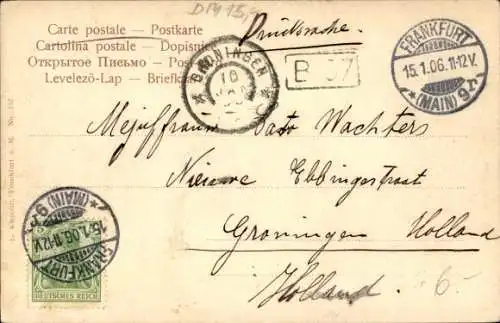 DM 15,-
Carte postale — Postkarte
Cartolina postale — Dopisnice
Открытое Письмо — Post
Levelezö-Lap — Briefkaart
Drucksache.
GRONINGEN
16
JAN
B 37
FRANKFURT
15.1.06.11-12V.
*(MAIN)9*
Mejuffrouw Wachters
Nieuwe Ebbingestraat
Groningen Holland
Holland
6-
Frankfurt a. M. No. 102
*(MAIN)9*
15.1.06.11-12V.
FRANKFURT
DEUTSCHES REICH